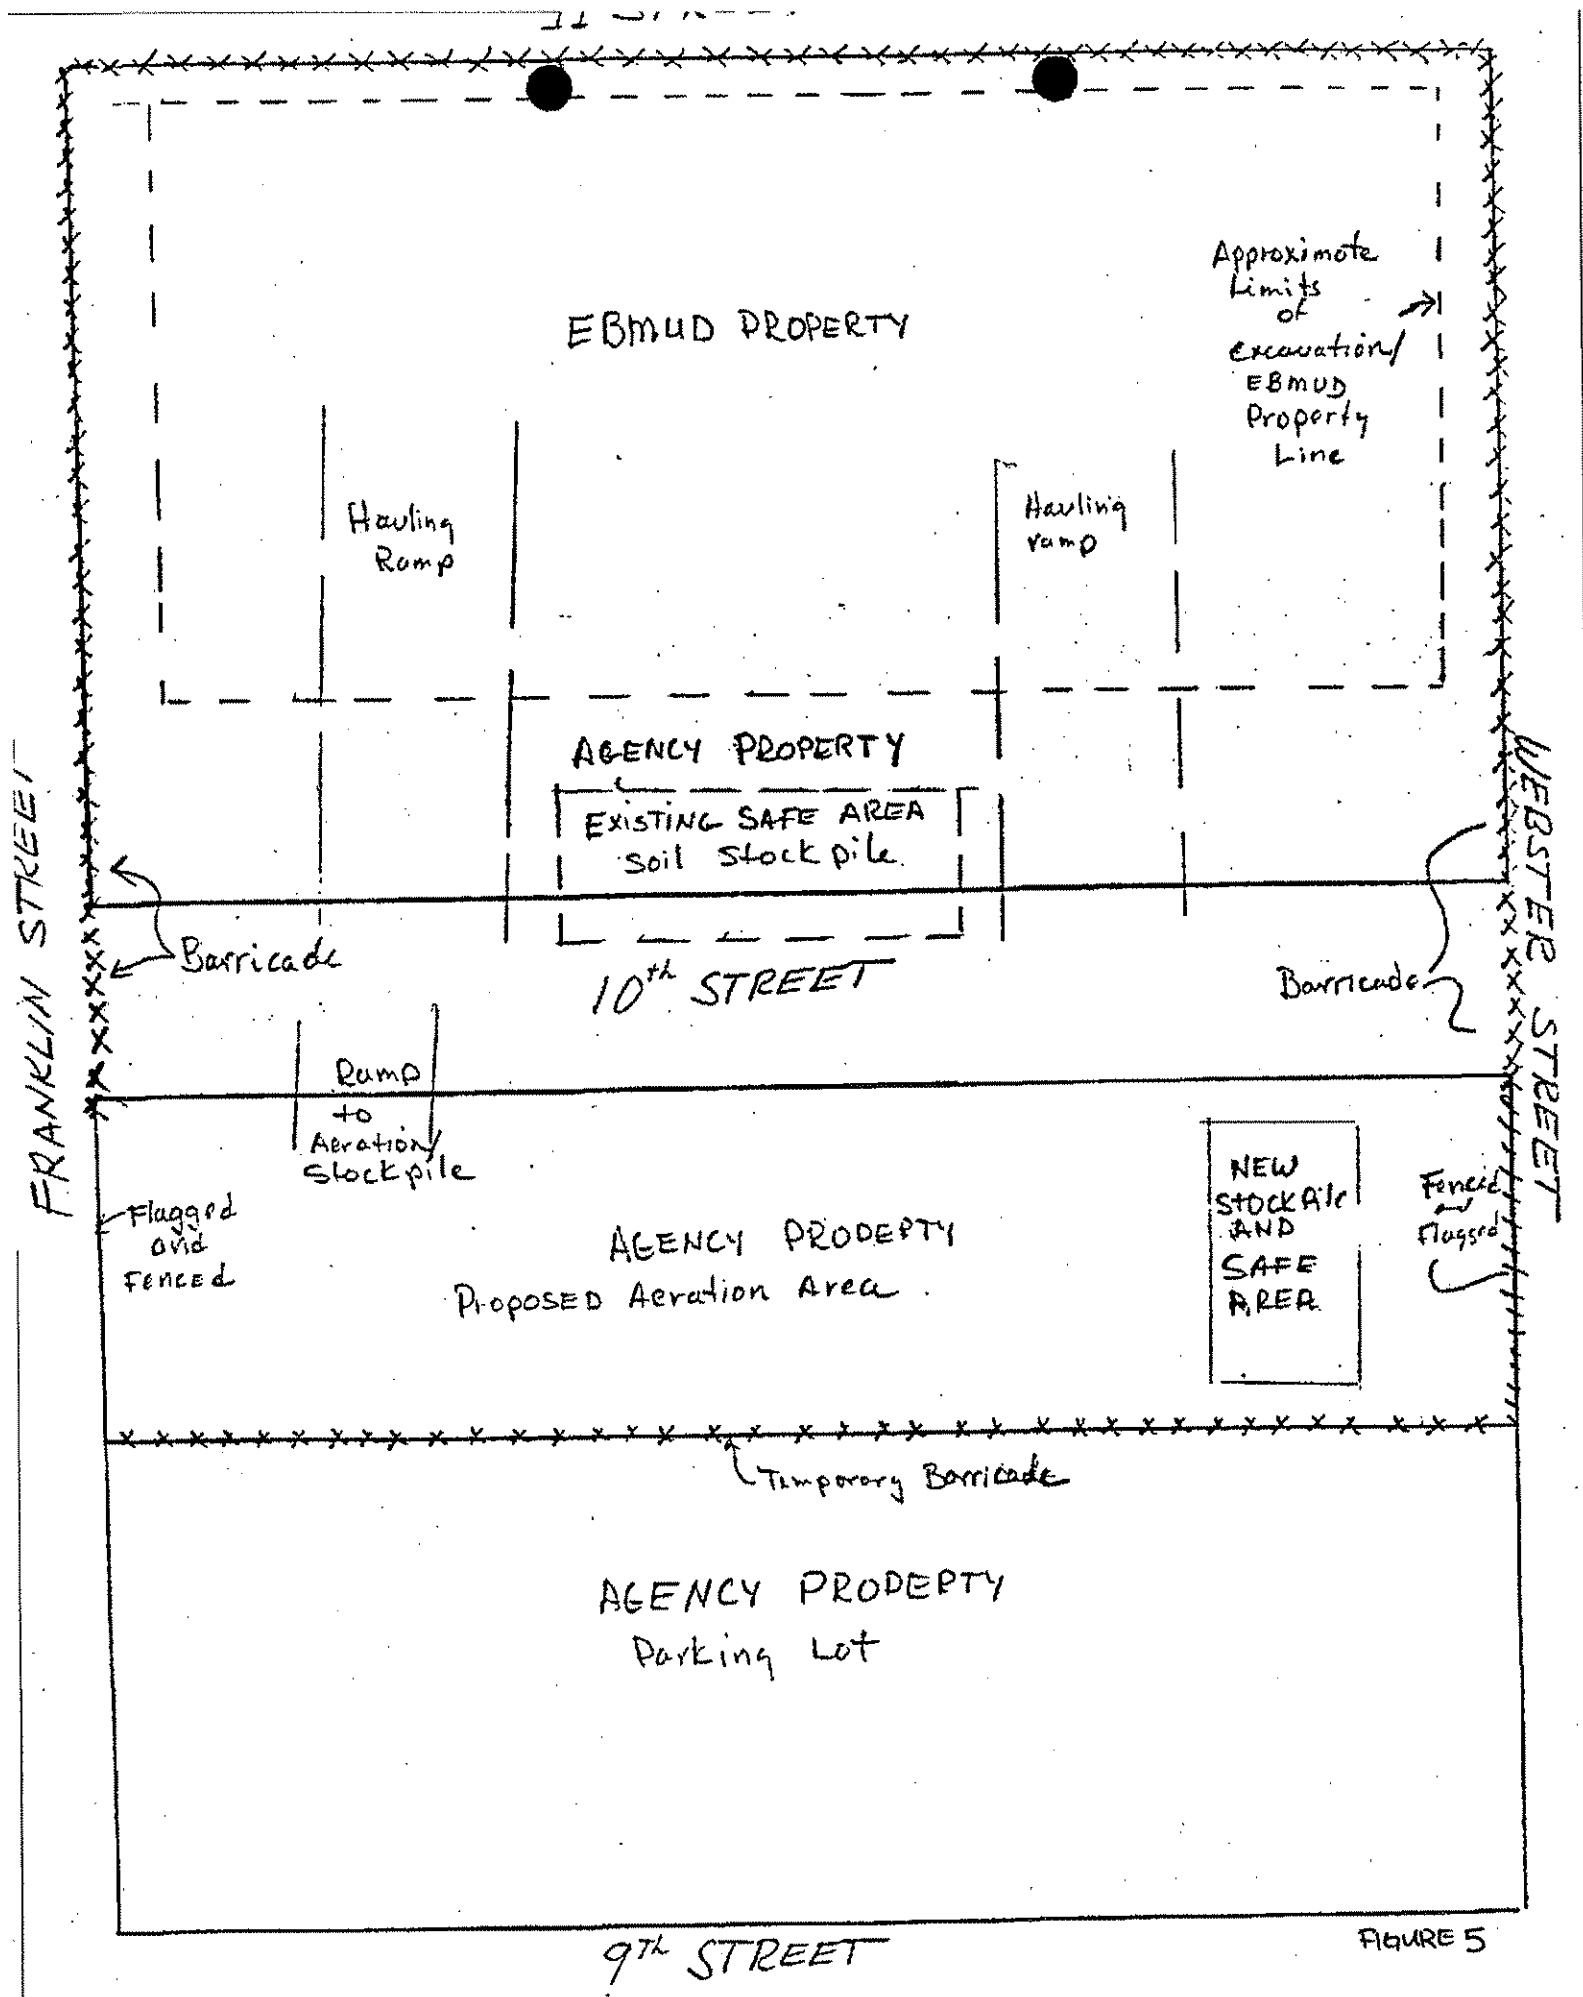 EBMUD PROPERTY
Approximate
Limits
of
Excavation/
EBMUD
Property
Line
Hauling
Ramp
Hauling
ramp
AGENCY PROPERTY
EXISTING SAFE AREA
Soil Stockpile
FRANKLIN STREET
WEBSTER STREET
Barricade
10th STREET
Barricade
Ramp
to
Aeration/
Stockpile
Flagged
and
Fenced
AGENCY PROPERTY
PROPOSED Aeration Area
NEW
STOCKPile
AND
SAFE
AREA
Fenced
Flagged
Temporary Barricade
AGENCY PROPERTY
Parking Lot
9TH STREET
FIGURE 5